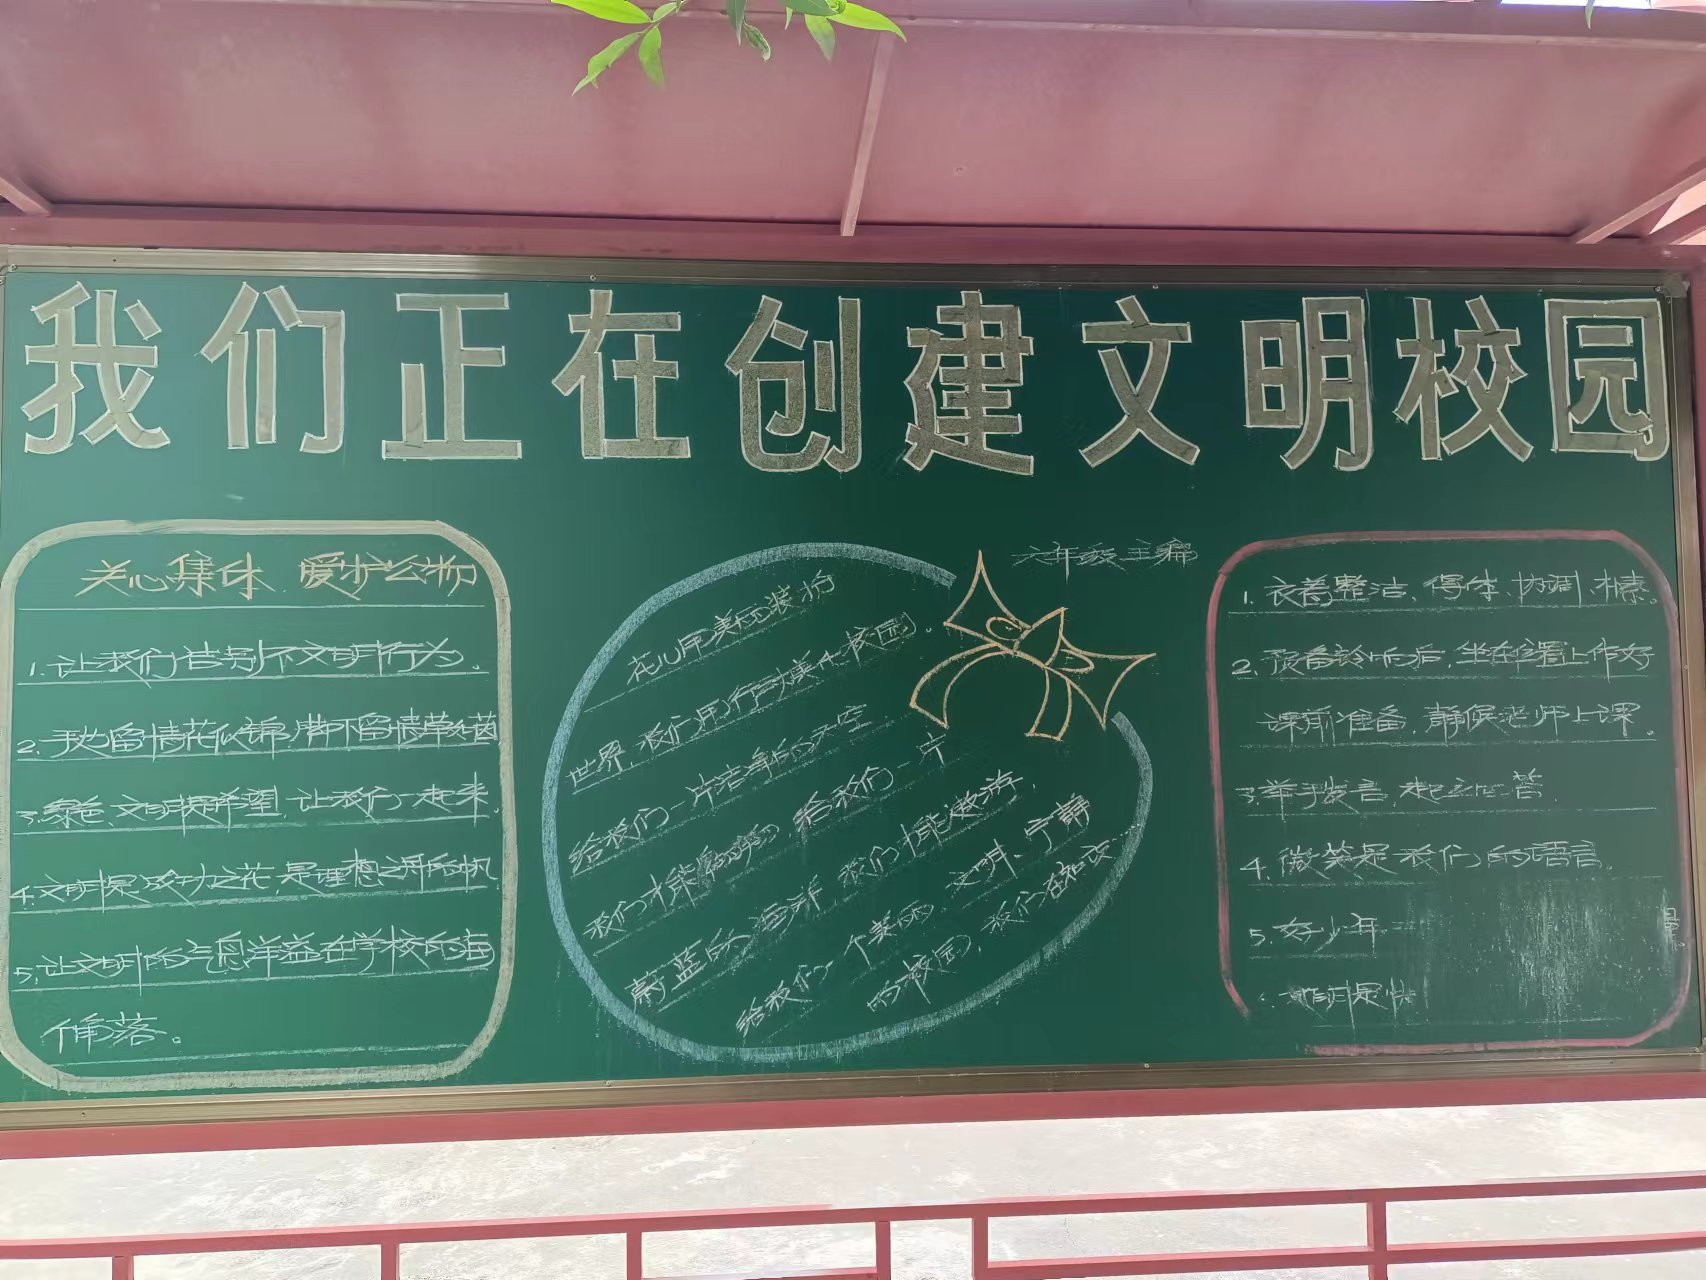 我们正在创建文明校园
关心集体 爱护公物
1.让我们告别不文明行为。
2.手边留情花似锦,脚下留情草如茵
3.绿色、文明是希望,让我们一起来。
4.文明是成功之花,是理想之舟的帆
5.让文明的气息洋溢在学校的每
个角落。
六年级主编
花儿用美丽装扮
世界,我们用行动美化校园。
给我们一片洁净的天空
我们才能 给我们一片
蔚蓝的海洋,我们才能遨游,
给我们一个美丽、文明、宁静
的校园,我们在
1.衣着整洁、得体、协调、朴素。
2.预备铃响后,坐在位置上作好
课前准备,静候老师上课。
3.举手发言,起立回答.
4.微笑是我们的语言.
5.好少年